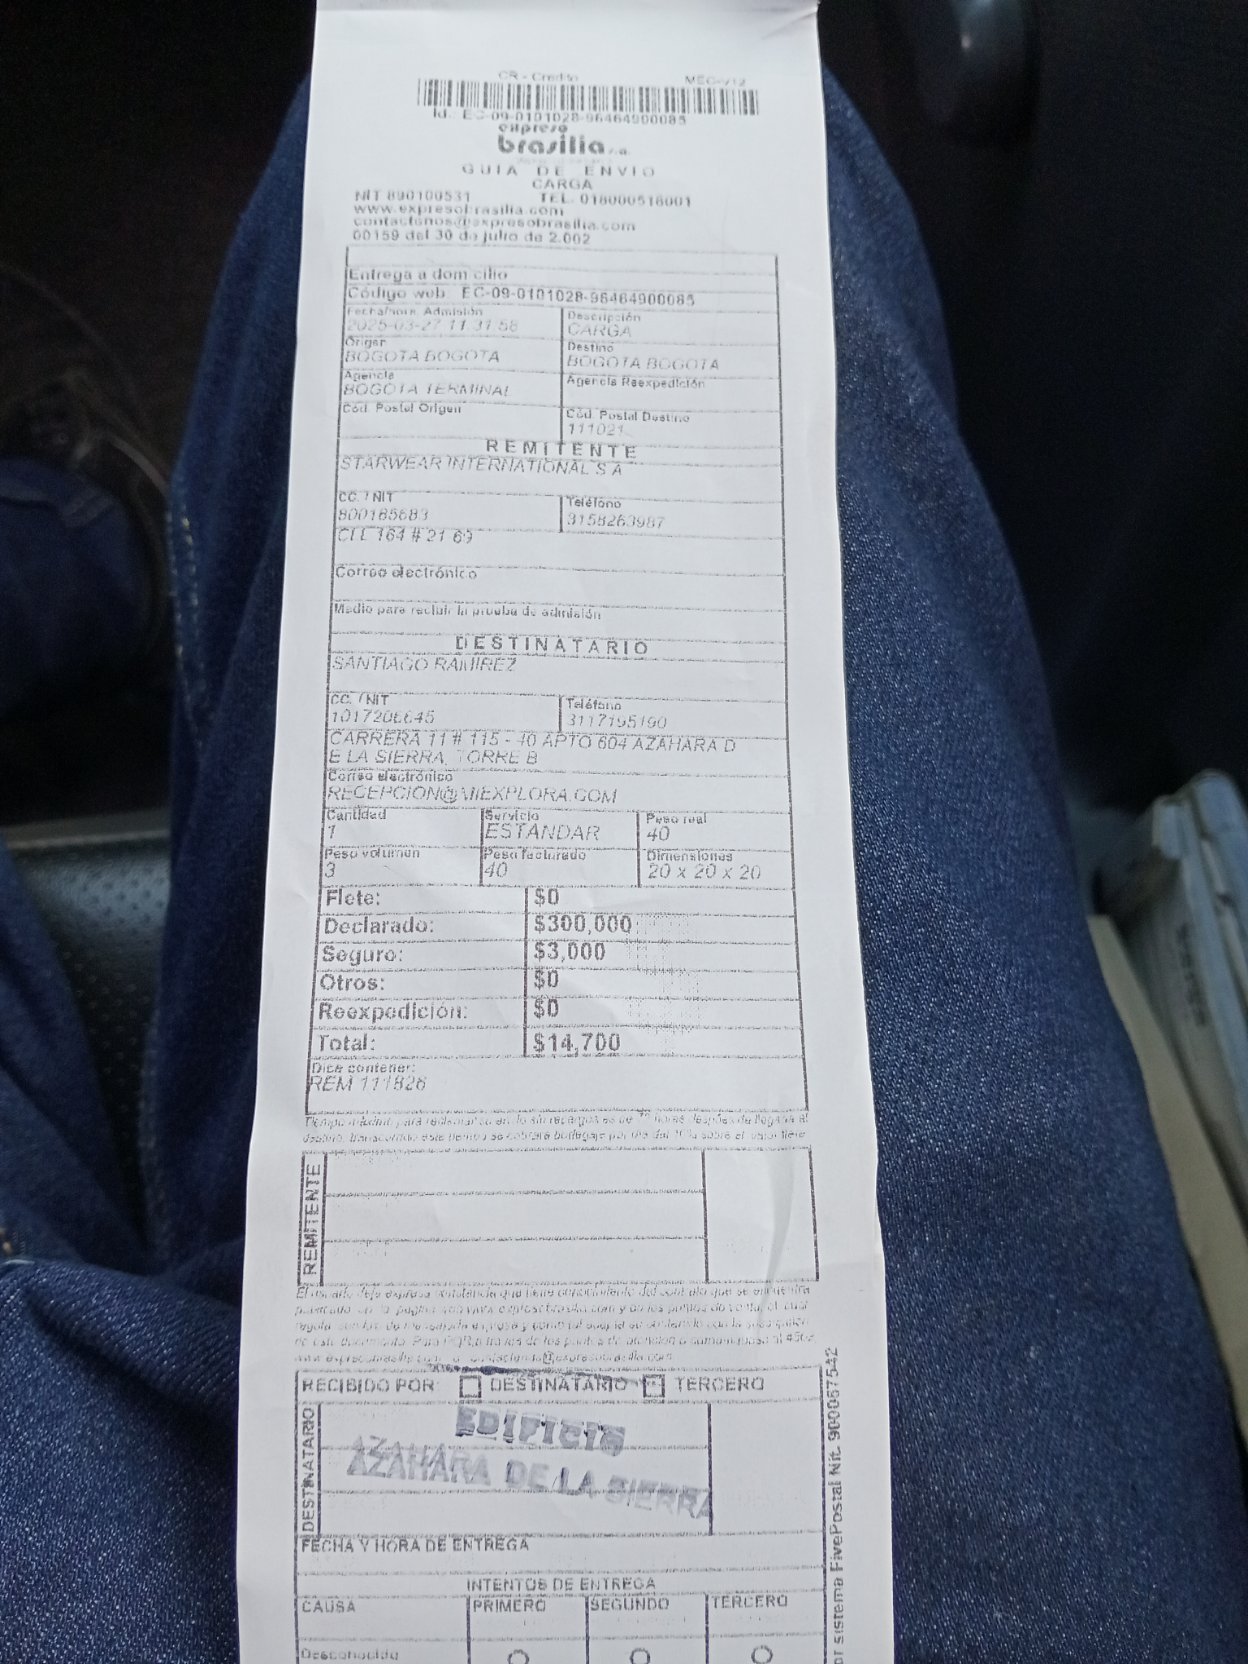 CR - Credito MEC-712
Id.: EC-09-0101028-96464900085
expreso
brasilia s.a.
GUIA DE ENVIO
CARGA
NIT 890100531 TEL. 018000518001
www.expresobrasilia.com
contactenos@expresobrasilia.com
00159 del 30 de julio de 2.002
Entrega a domicilio
Código web: EC-09-0101028-96464900085
Fecha/hora Admisión Descripción
2025-03-27 11:31:58 CARGA
Origen Destino
BOGOTA BOGOTA BOGOTA BOGOTA
Agencia Agencia Reexpedición
BOGOTA TERMINAL
Cód. Postal Origen Cód. Postal Destino
111021
REMITENTE
STARWEAR INTERNATIONAL S A
CC. / NIT Teléfono
800185683 3158263987
CLL 164 # 21 69
Correo electrónico
Medio para recibir la prueba de admisión
DESTINATARIO
SANTIAGO RAMIREZ
CC. / NIT Teléfono
1017206645 3117195190
CARRERA 11 # 115 - 40 APTO 604 AZAHARA D
E LA SIERRA, TORRE B
Correo electrónico
RECEPCION@VIIEXPLORA.COM
Cantidad Servicio Peso real
1 ESTANDAR 40
Peso volumen Peso facturado Dimensiones
3 40 20 x 20 x 20
Flete: $0
Declarado: $300,000
Seguro: $3,000
Otros: $0
Reexpedición: $0
Total: $14,700
Dice contener:
REM 111826
REMITENTE
RECIBIDO POR: DESTINATARIO TERCERO
DESTINATARIO
EDIFICIO
AZAHARA DE LA SIERRA
FECHA Y HORA DE ENTREGA
INTENTOS DE ENTREGA
CAUSA PRIMERO SEGUNDO TERCERO
Desconocido
or sistema FivePostal Nit. 900067542